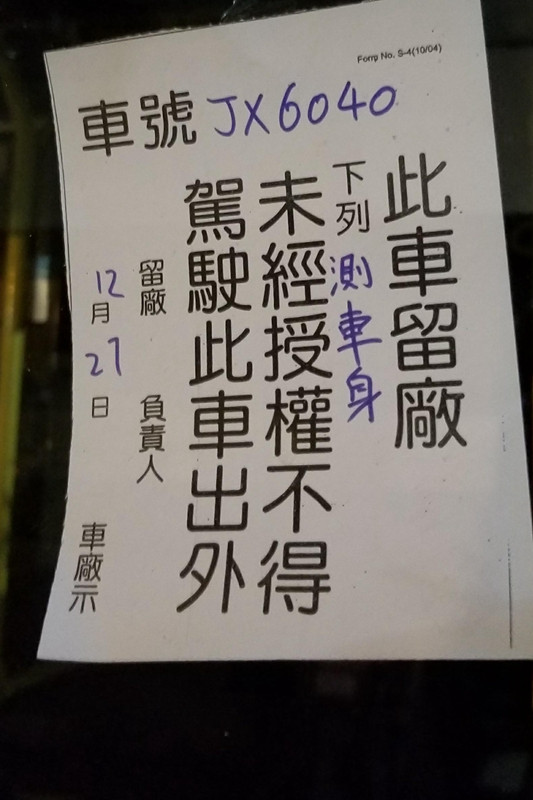 Form No. S-4(10/04)
車號 JX6040
此車留廠
下列 測車身
未經授權不得
駕駛此車出外
留廠 負責人
12月27日
車廠示